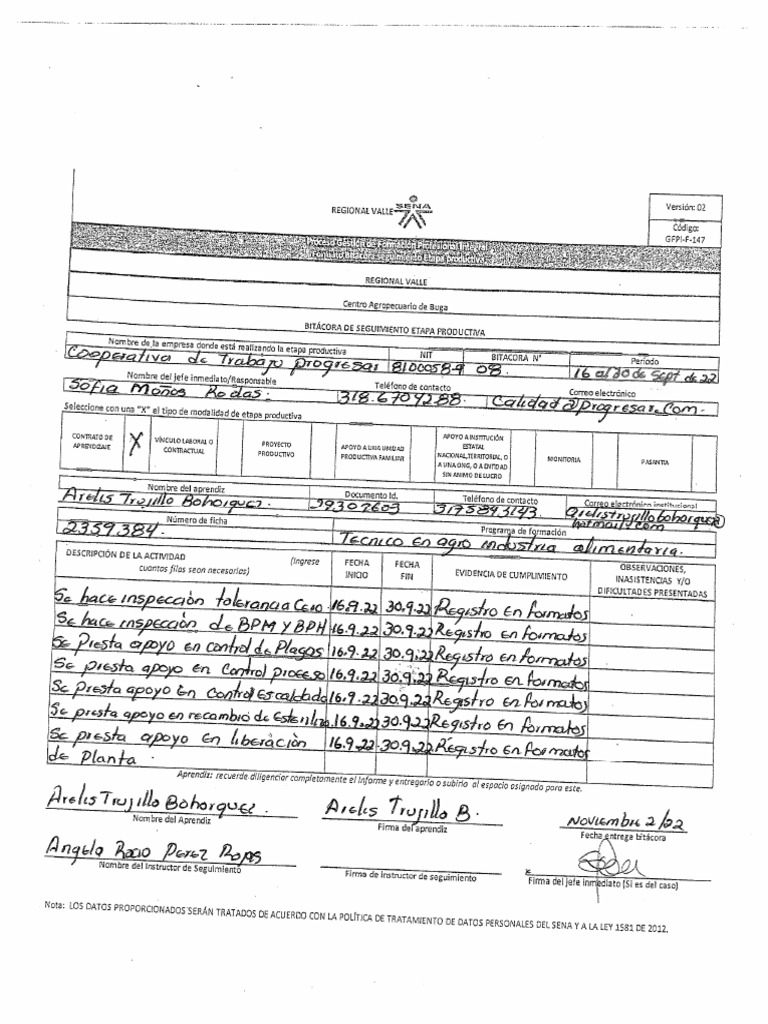 REGIONAL VALLE
SENA
Versión: 02
Código:
GFPI-F-147
Proceso Gestión de Formación Profesional Integral
REGIONAL VALLE
Centro Agropecuario de Buga
BITÁCORA DE SEGUIMIENTO ETAPA PRODUCTIVA
Nombre de la empresa donde está realizando la etapa productiva NIT BITACORA N° Periodo
Cooperativa de Trabajo progresar 8100058-9 08. 16 al 30 de Sept de 22
Nombre del jefe inmediato/Responsable Teléfono de contacto Correo electrónico
Sofia Moños Rodas. 318.6709288. Calidad@Progresar.Com.
Seleccione con una "X" el tipo de modalidad de etapa productiva
CONTRATO DE APRENDIZAJE X VÍNCULO LABORAL O CONTRACTUAL PROYECTO PRODUCTIVO APOYO A UNA UNIDAD PRODUCTIVA FAMILIAR APOYO A INSTITUCIÓN ESTATAL NACIONAL,TERRITORIAL, O A UNA ONG, O A ENTIDAD SIN ANIMO DE LUCRO MONITORIA PASANTIA
Nombre del aprendiz Documento Id. Teléfono de contacto Correo electrónico institucional
Arelis Trujillo Bohorquez. 29302603 3175893143. arelistrujillobohorquez@
hotmail.com
Número de ficha Programa de formación
2359.384. Tecnico En agro industria alimentaria.
DESCRIPCIÓN DE LA ACTIVIDAD (Ingrese cuantas filas sean necesarias) FECHA INICIO FECHA FIN EVIDENCIA DE CUMPLIMIENTO OBSERVACIONES, INASISTENCIAS Y/O DIFICULTADES PRESENTADAS
Se hace inspección tolerancia Cero 16.9.22 30.9.22 Registro En formatos
Se hace inspección de BPM Y BPH 16.9.22 30.9.22 Registro En formatos
Se Presta apoyo en control de Plagas 16.9.22 30.9.22 Registro En formatos
Se presta apoyo en Control proceso 16.9.22 30.9.22 Registro En formatos
Se Presta apoyo En Control Escaldado 16.9.22 30.9.22 Registro En formatos
Se presta apoyo en recambio de 16.9.22 30.9.22 Registro En formatos
Se presta apoyo en liberación 16.9.22 30.9.22 Registro En formatos
de Planta.
Aprendiz: recuerde diligenciar completamente el Informe y entregarlo o subirlo al espacio asignado para este.
Arelis Trujillo Bohorquez. Arelis Trujillo B. Noviembre 2/22
Nombre del Aprendiz Firma del aprendiz Fecha entrega bitácora
Angela Rocio Perez Rojas
Nombre del Instructor de Seguimiento Firma de Instructor de seguimiento x Firma del jefe inmediato (Si es del caso)
Nota: LOS DATOS PROPORCIONADOS SERÁN TRATADOS DE ACUERDO CON LA POLÍTICA DE TRATAMIENTO DE DATOS PERSONALES DEL SENA Y A LA LEY 1581 DE 2012.